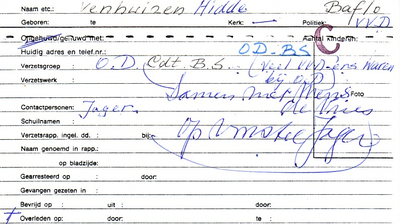 Naam etc.: Venhuizen Hidde Baflo
Geboren: te Kerk: — Politiek: V.V.D.
Ongehuwd/gehuwd met: Aantal kinderen:
C
Huidig adres en telef.nr.: O.D.-B.S.
Verzetsgroep : O.D. Cdt. B.S. (Veel VVD-ers waren
Verzetswerk : bij O.D)
Samen met Mens Foto
Contactpersonen: Jager. De Vries
Schuilnaam :
Verzetsrapp. ingel. dd. : bij: Jager
Naam genoemd in rapp.:
op bladzijde:
Gearresteerd op : door:
Gevangen gezeten in :
Bevrijd op : uit : door:
† Overleden op: door: te :